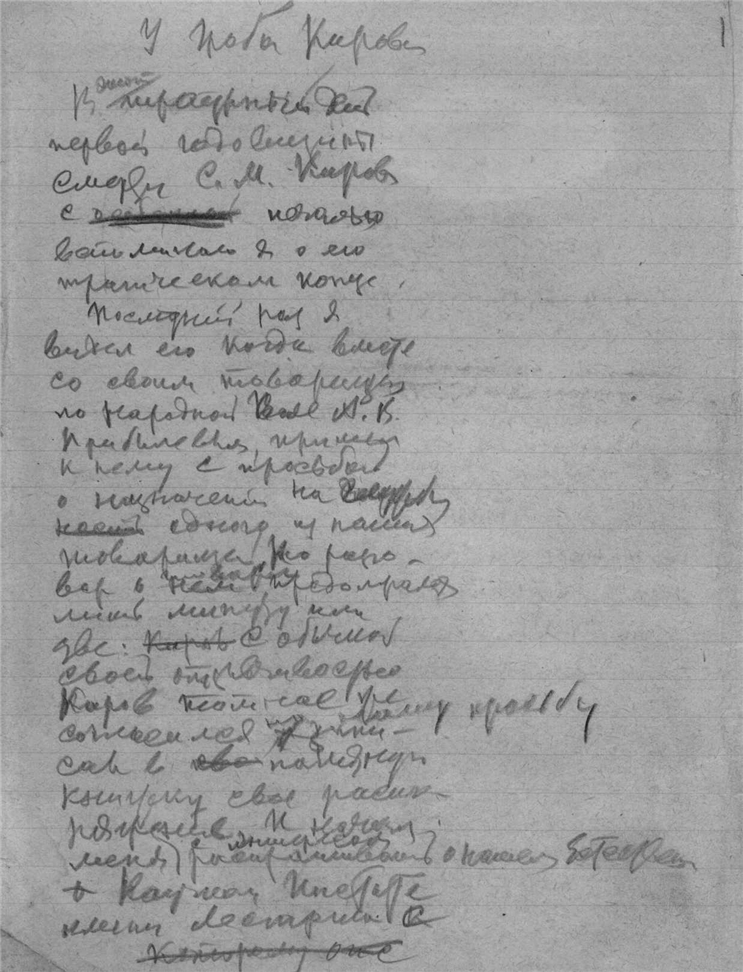 У гроба Кирова
1
В этот траурный день
первой годовщины
смерти С. М. Кирова
с печалью
вспоминаю я о его
трагическом конце.
Последний раз я
видел его когда вместе
со своим товарищем
по Народной Воле А. В.
Прибылевым, пришли
к нему с просьбой
о назначении на
одного из наших
товарищей. Но разго-
вор о продолжался
лишь минуту или
две: Киров С обычной
своей отзывчивостью
Киров тотчас же
согласился нашу просьбу
сав в сво памятную
книжку свое распо-
ряжение и начал
меня расспрашивать о нашем
в Научном Институте
имени Лесгафта
Которому